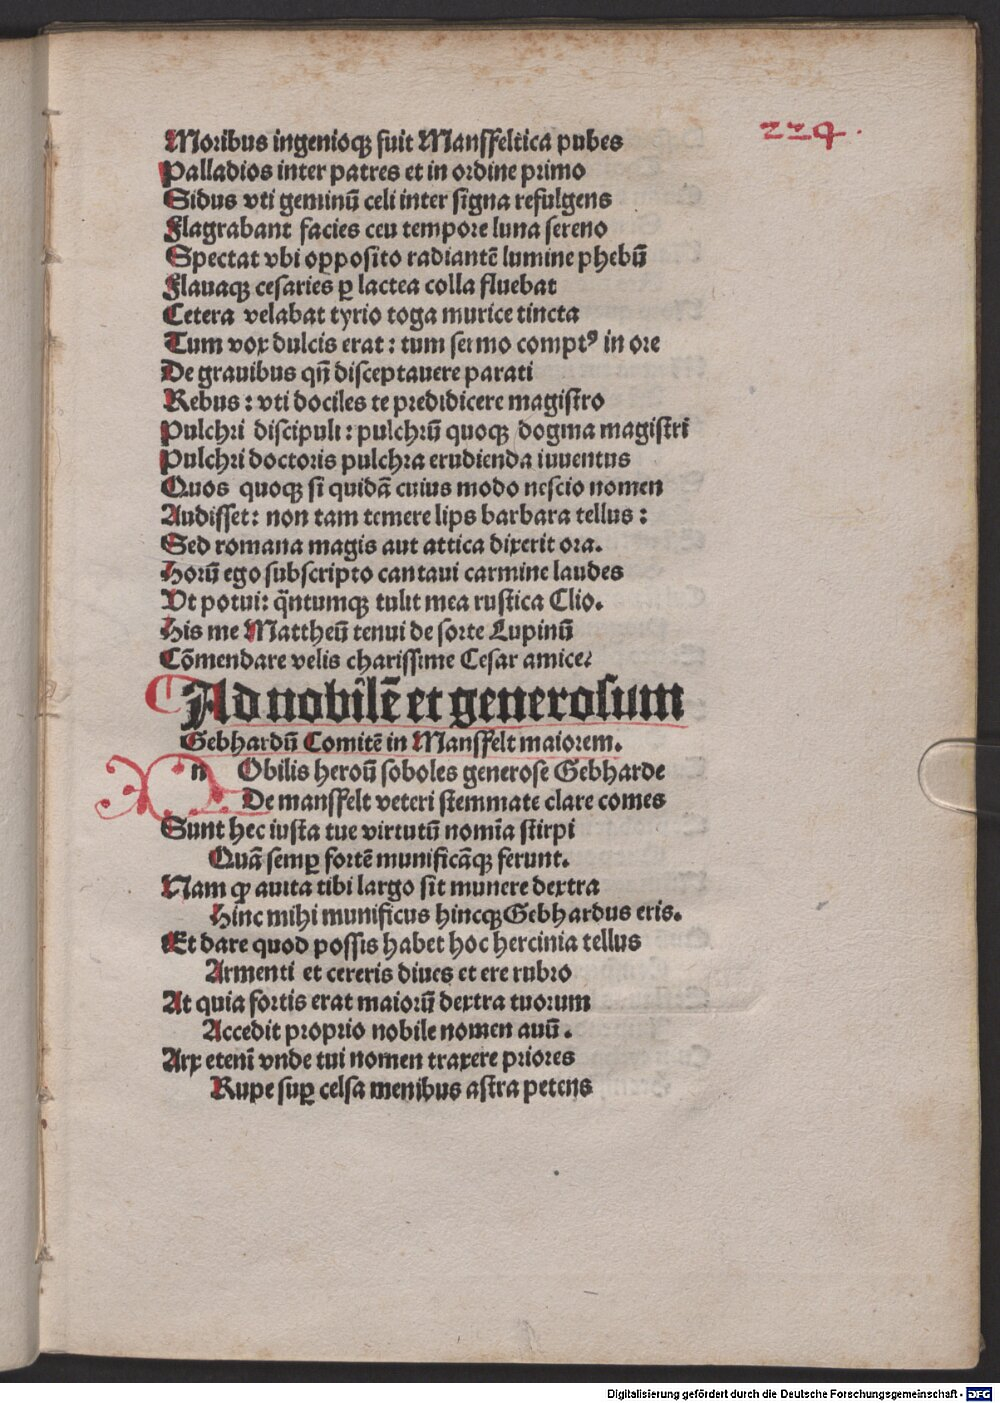 224.
Moribus ingenioqꝫ fuit Mansffeltica pubes
Palladios inter patres et in ordine primo
Sidus vti geminū celi inter signa refulgens
Flagrabant facies ceu tempore luna sereno
Spectat vbi opposito radiantē lumine phebū
Flauaqꝫ cesaries ꝑ lactea colla fluebat
Cetera velabat tyrio toga murice tincta
Tum vox dulcis erat : tum sermo comptꝰ in ore
De grauibus qn̄ disceptauere parati
Rebus : vti dociles te predidicere magistro
Pulchri discipuli : pulchrū quoqꝫ dogma magistri
Pulchri doctoris pulchra erudienda iuuentus
Quos quoqꝫ si quidā cuius modo nescio nomen
Audisset : non tam temere lips barbara tellus :
Sed romana magis aut attica dixerit ora.
Horū ego subscripto cantaui carmine laudes
Vt potui: q̄ntumqꝫ tulit mea rustica Clio.
His me Mattheū tenui de sorte Lupinū
Cōmendare velis charissime Cesar amice?
Ad nobilē et generosum
Gebhardū Comitē in Mansffelt maiorem.
n Obilis heroū soboles generose Gebharde
De mansffelt veteri stemmate clare comes
Sunt hec iusta tue virtutū nomīa stirpi
Quā semꝑ fortē munificāqꝫ ferunt.
Nam ꝙ auita tibi largo sit munere dextra
Hinc mihi munificus hincqꝫ Gebhardus eris.
Et dare quod possis habet hoc hercinia tellus
Armenti et cereris diues et ere rubro
At quia fortis erat maiorū dextra tuorum
Accedit proprio nobile nomen auū.
Arx etenī vnde tui nomen traxere priores
Rupe suꝑ celsa menibus astra petens
Digitalisierung gefördert durch die Deutsche Forschungsgemeinschaft - DFG